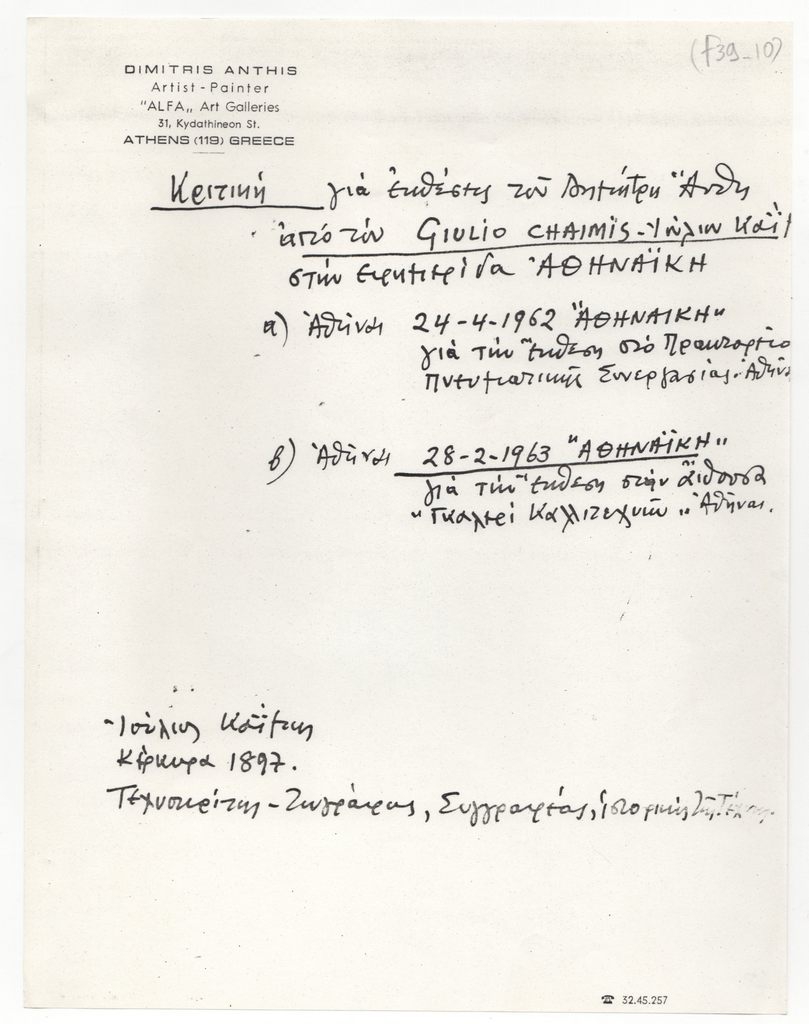 (f39-10)
DIMITRIS ANTHIS
Artist - Painter
"ALFA„ Art Galleries
31, Kydathineon St.
ATHENS (119) GREECE
Κριτική γιά ἐκθέσεις τοῦ Δημήτρη Ἄνθη
ἀπό τόν GIULIO CHAIMIS - Ἰούλιο
στήν ἐφημερίδα ἈΘΗΝΑΪΚΗ
α) Ἀθῆναι 24-4-1962 "ΑΘΗΝΑΙΚΗ"
γιά τήν ἔκθεση στό Πρακτορεῖο
Πνευματικῆς Συνεργασίας. Ἀθῆνα
β) Ἀθῆναι 28-2-1963 "ΑΘΗΝΑΪΚΗ"
γιά τήν ἔκθεση στήν αἴθουσα
"Γκαλερί Καλλιτεχνῶν" Ἀθῆναι.
Ἰούλιος Καΐμης
Κέρκυρα 1897.
Τεχνοκρίτης - Ζωγράφος, Συγγραφέας, ἱστορικός τῆς Τέχνης.
☎ 32.45.257